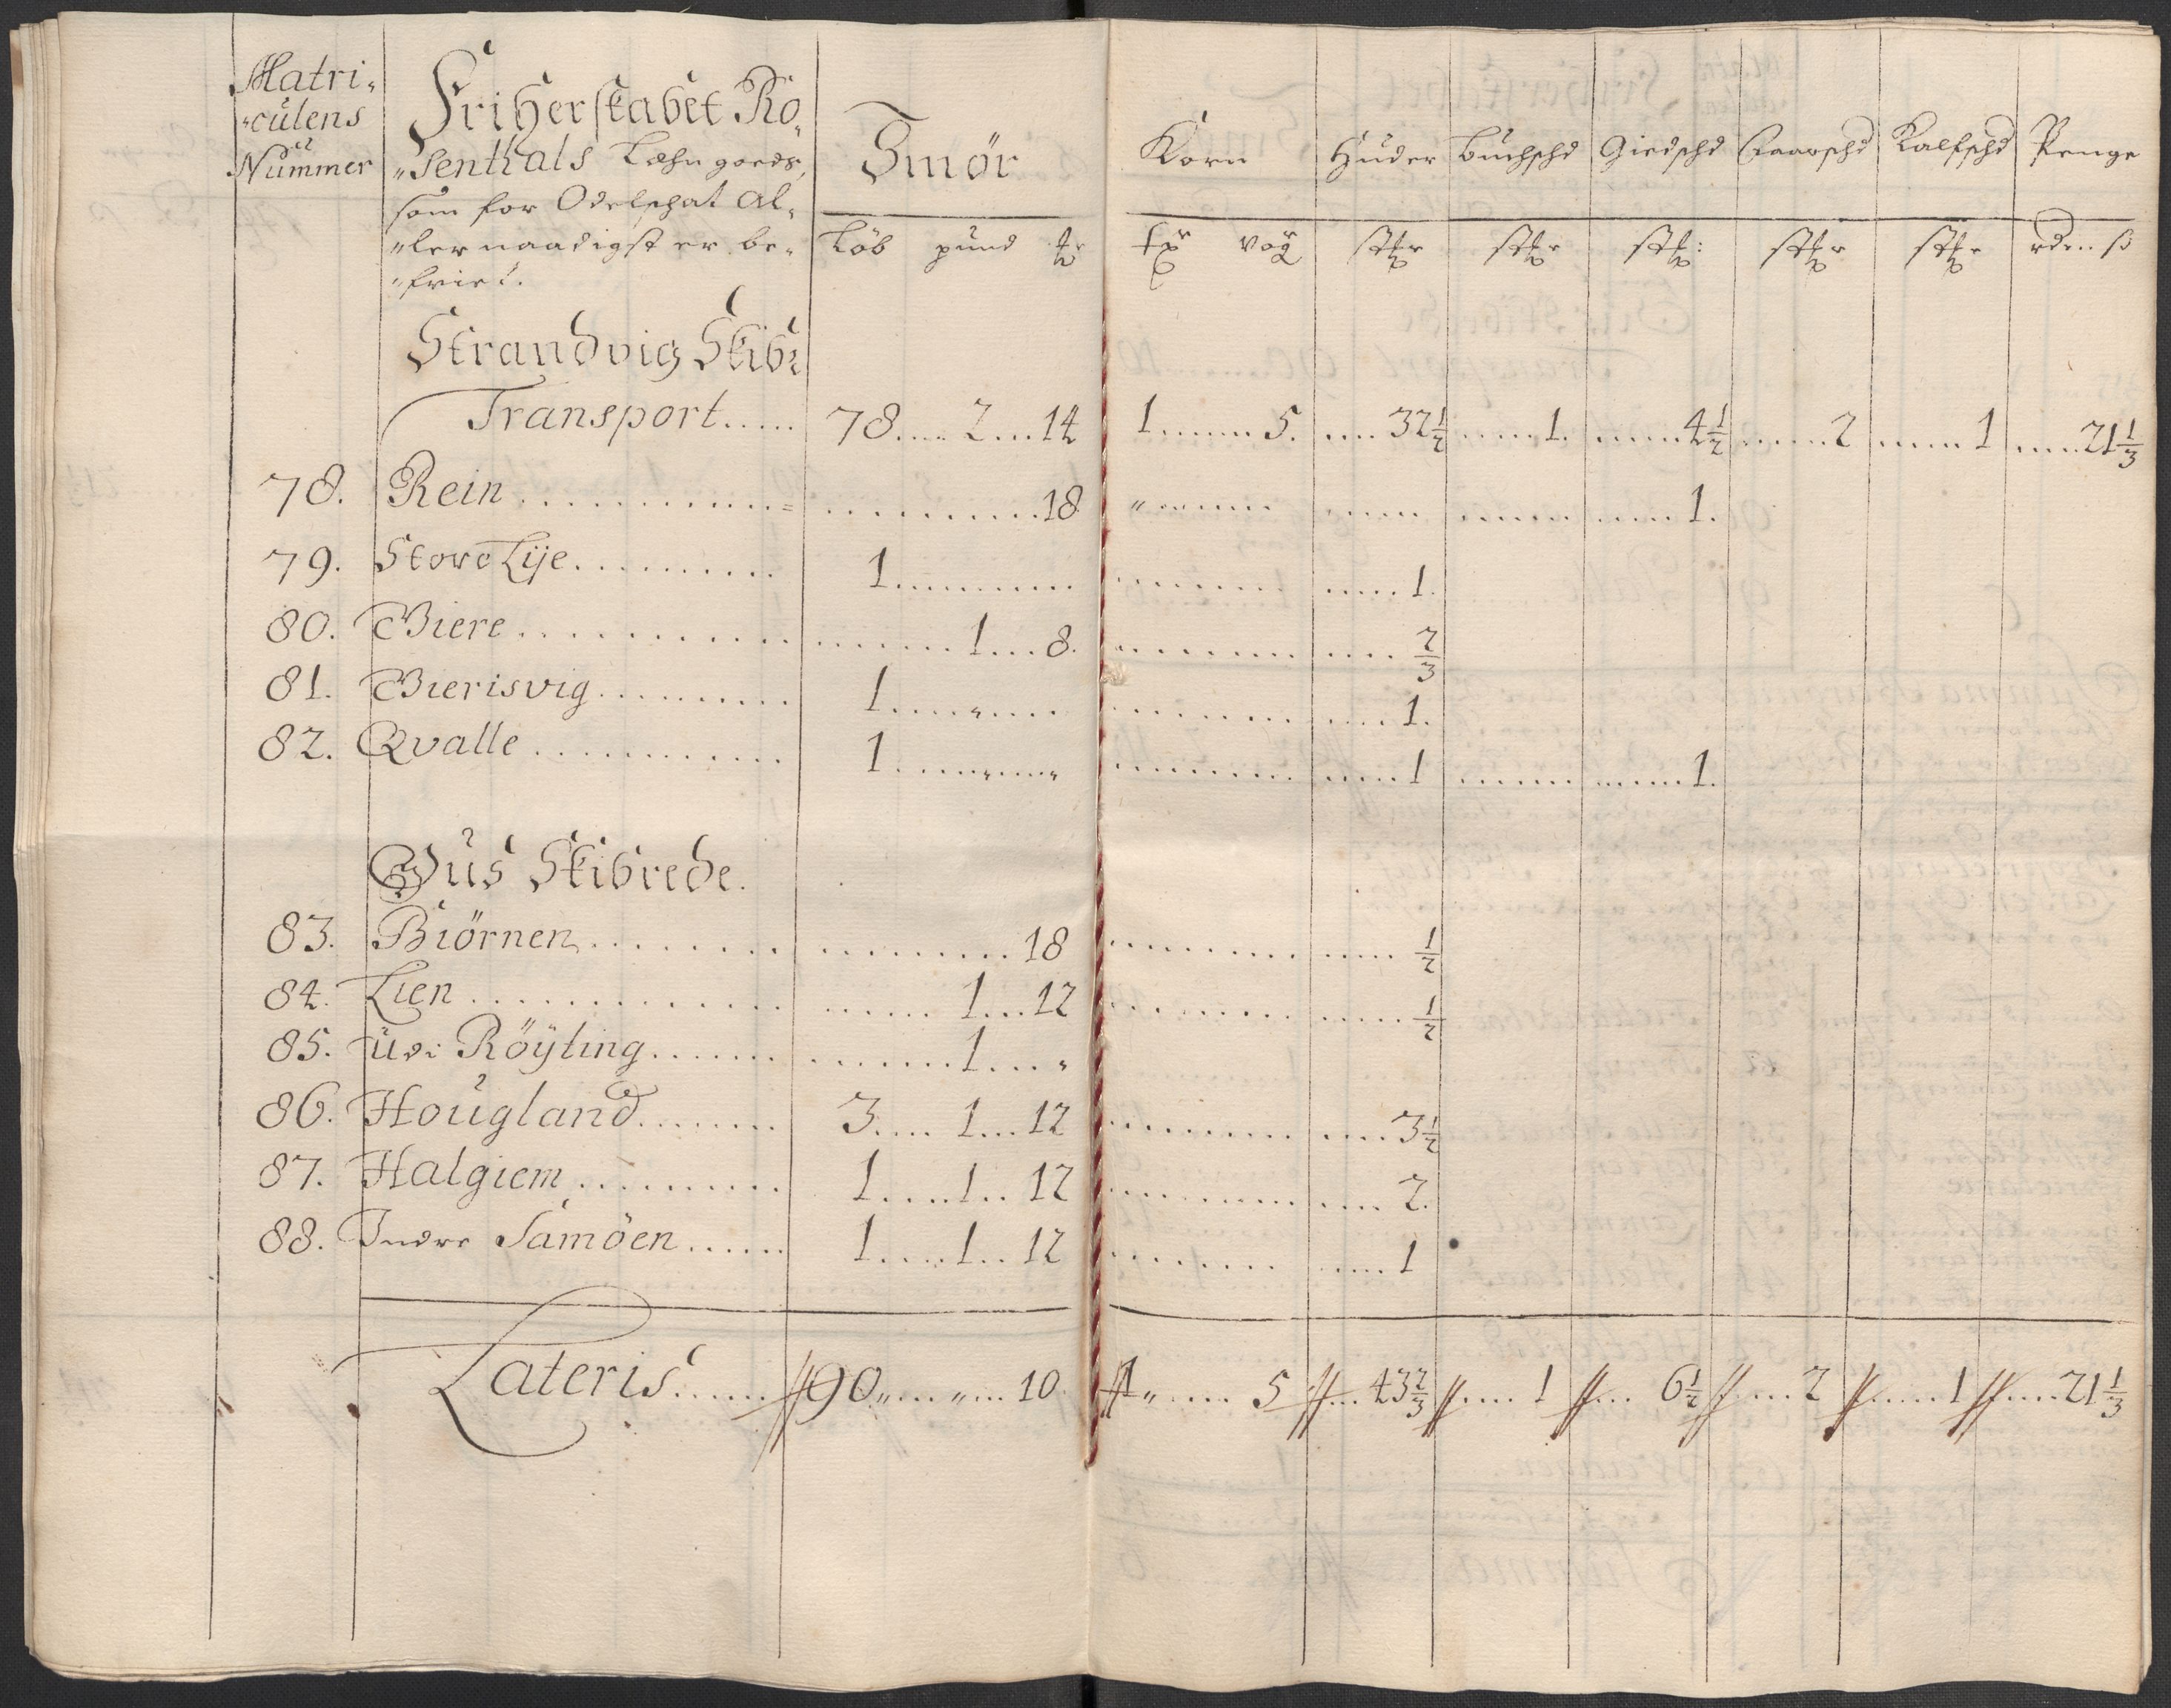 Matri-
-culens
Nummer
Friherskabet Ro-
"senthals Læhn goeds,
som for Odelschat al-
"ler naadigst er be-
"friet.
Smör
Korn Huder Buchschd Giedschd Faarschd Kalfschd Penge
Löb pund
vog
Strandvig Skibr
Transport..... 78.... 2... 14 1...... 5. .... 32 1/2 ..... 1. ..... 4 1/2 ..... 2 ..... 1 .... 21 1/3
78. Rein .......... 18 ..... 1.
79. Store Lije.......... 1.......... ..... 1.
80. Giere .......... 1... 8. .... 2/3
81. Gierisvig......... 1......... .... 1.
82. Qvalle .......... 1......... .... 1 ...... 1.
Gus Skibrede.
83. Biörnen ........ 18 ..... 1/2
84. Lien ........ 1... 12 ..... 1/2
85. udi Röyting....... 1... "
86. Hougland........ 3.... 1... 12 .... 3 1/2
87. Halgiem.......... 1..... 1.. 12 .... 2.
88. Indre Samöen...... 1..... 1.. 12 .... 1
Lateris...... 90 " .... " ... 10 1 " .... 5 ... 43 2/3 .... 1 ... 6 1/2 .... 2 ..... 1 .... 21 1/3